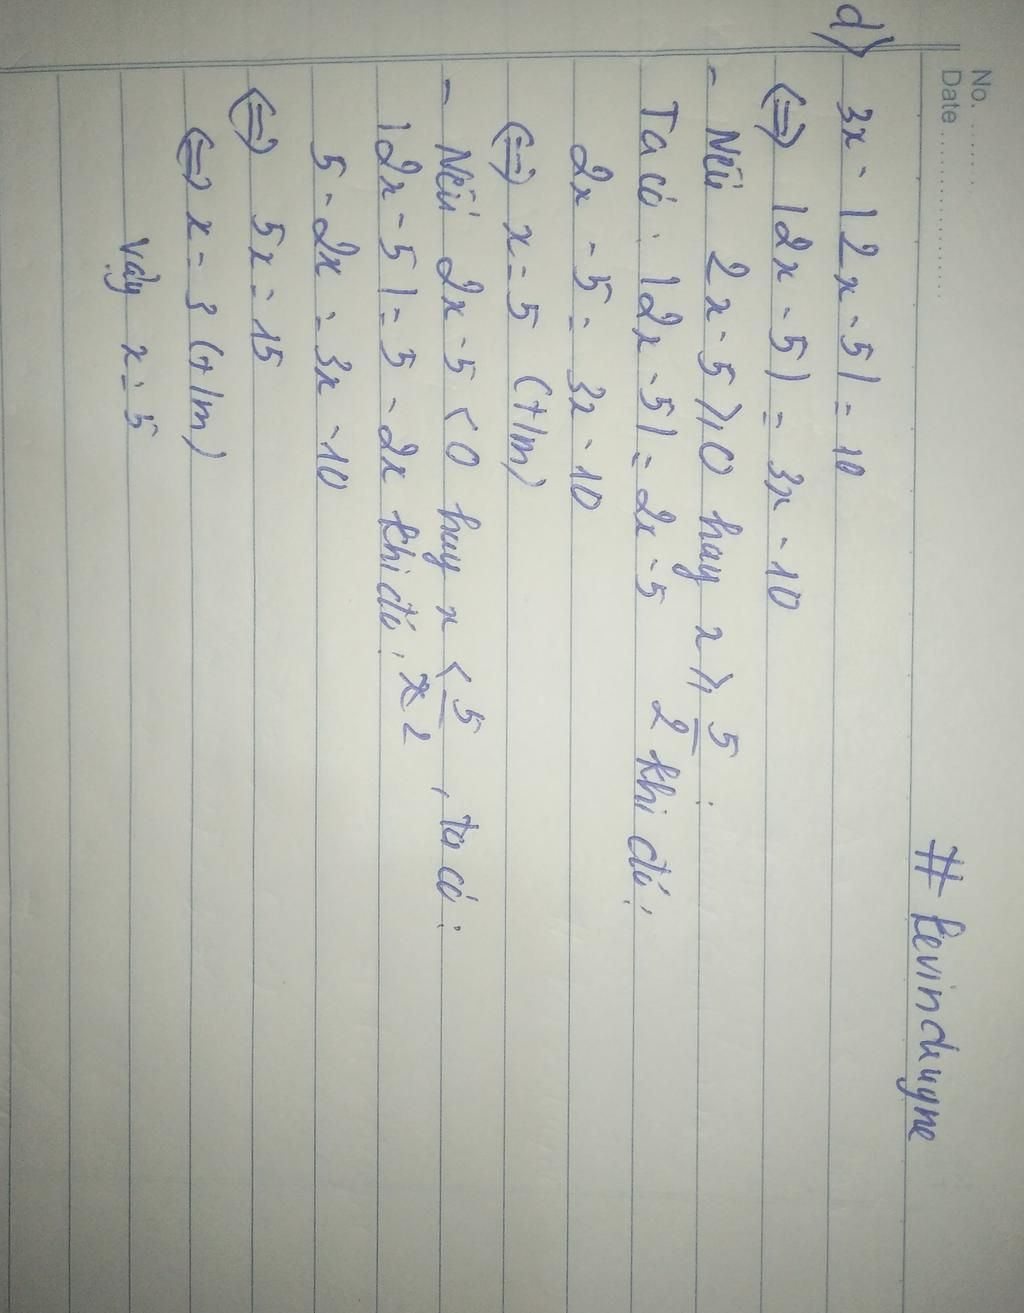 No. ........
Date ....................
# Kevinduyne
d) 3x - |2x - 5| = 10
(=) |2x - 5| = 3x - 10
- Nếu 2x - 5 ⩾ 0 hay x ⩾ 5/2
Ta có: |2x - 5| = 2x - 5 khi đó:
2x - 5 = 3x - 10
(=) x = 5 (t/m)
- Nếu 2x - 5 < 0 hay x < 5/2, ta có:
|2x - 5| = 5 - 2x khi đó:
5 - 2x = 3x - 10
(=) 5x = 15
(=) x = 3 (t/m)
Vậy x = 5